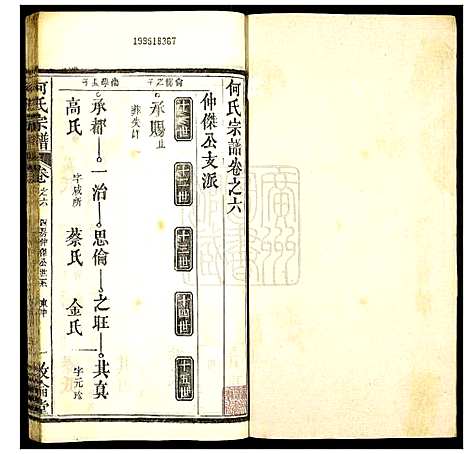 198518367
何氏宗譜卷之六
仲傑公支派
十一世
十二世
十三世
十四世
十五世
承賜止
葬失訂
承都
一治
思倫
之旺
其真
高氏
字咸所
蔡氏
金氏
字元珍
何氏宗譜
卷之六
一
敦倫堂